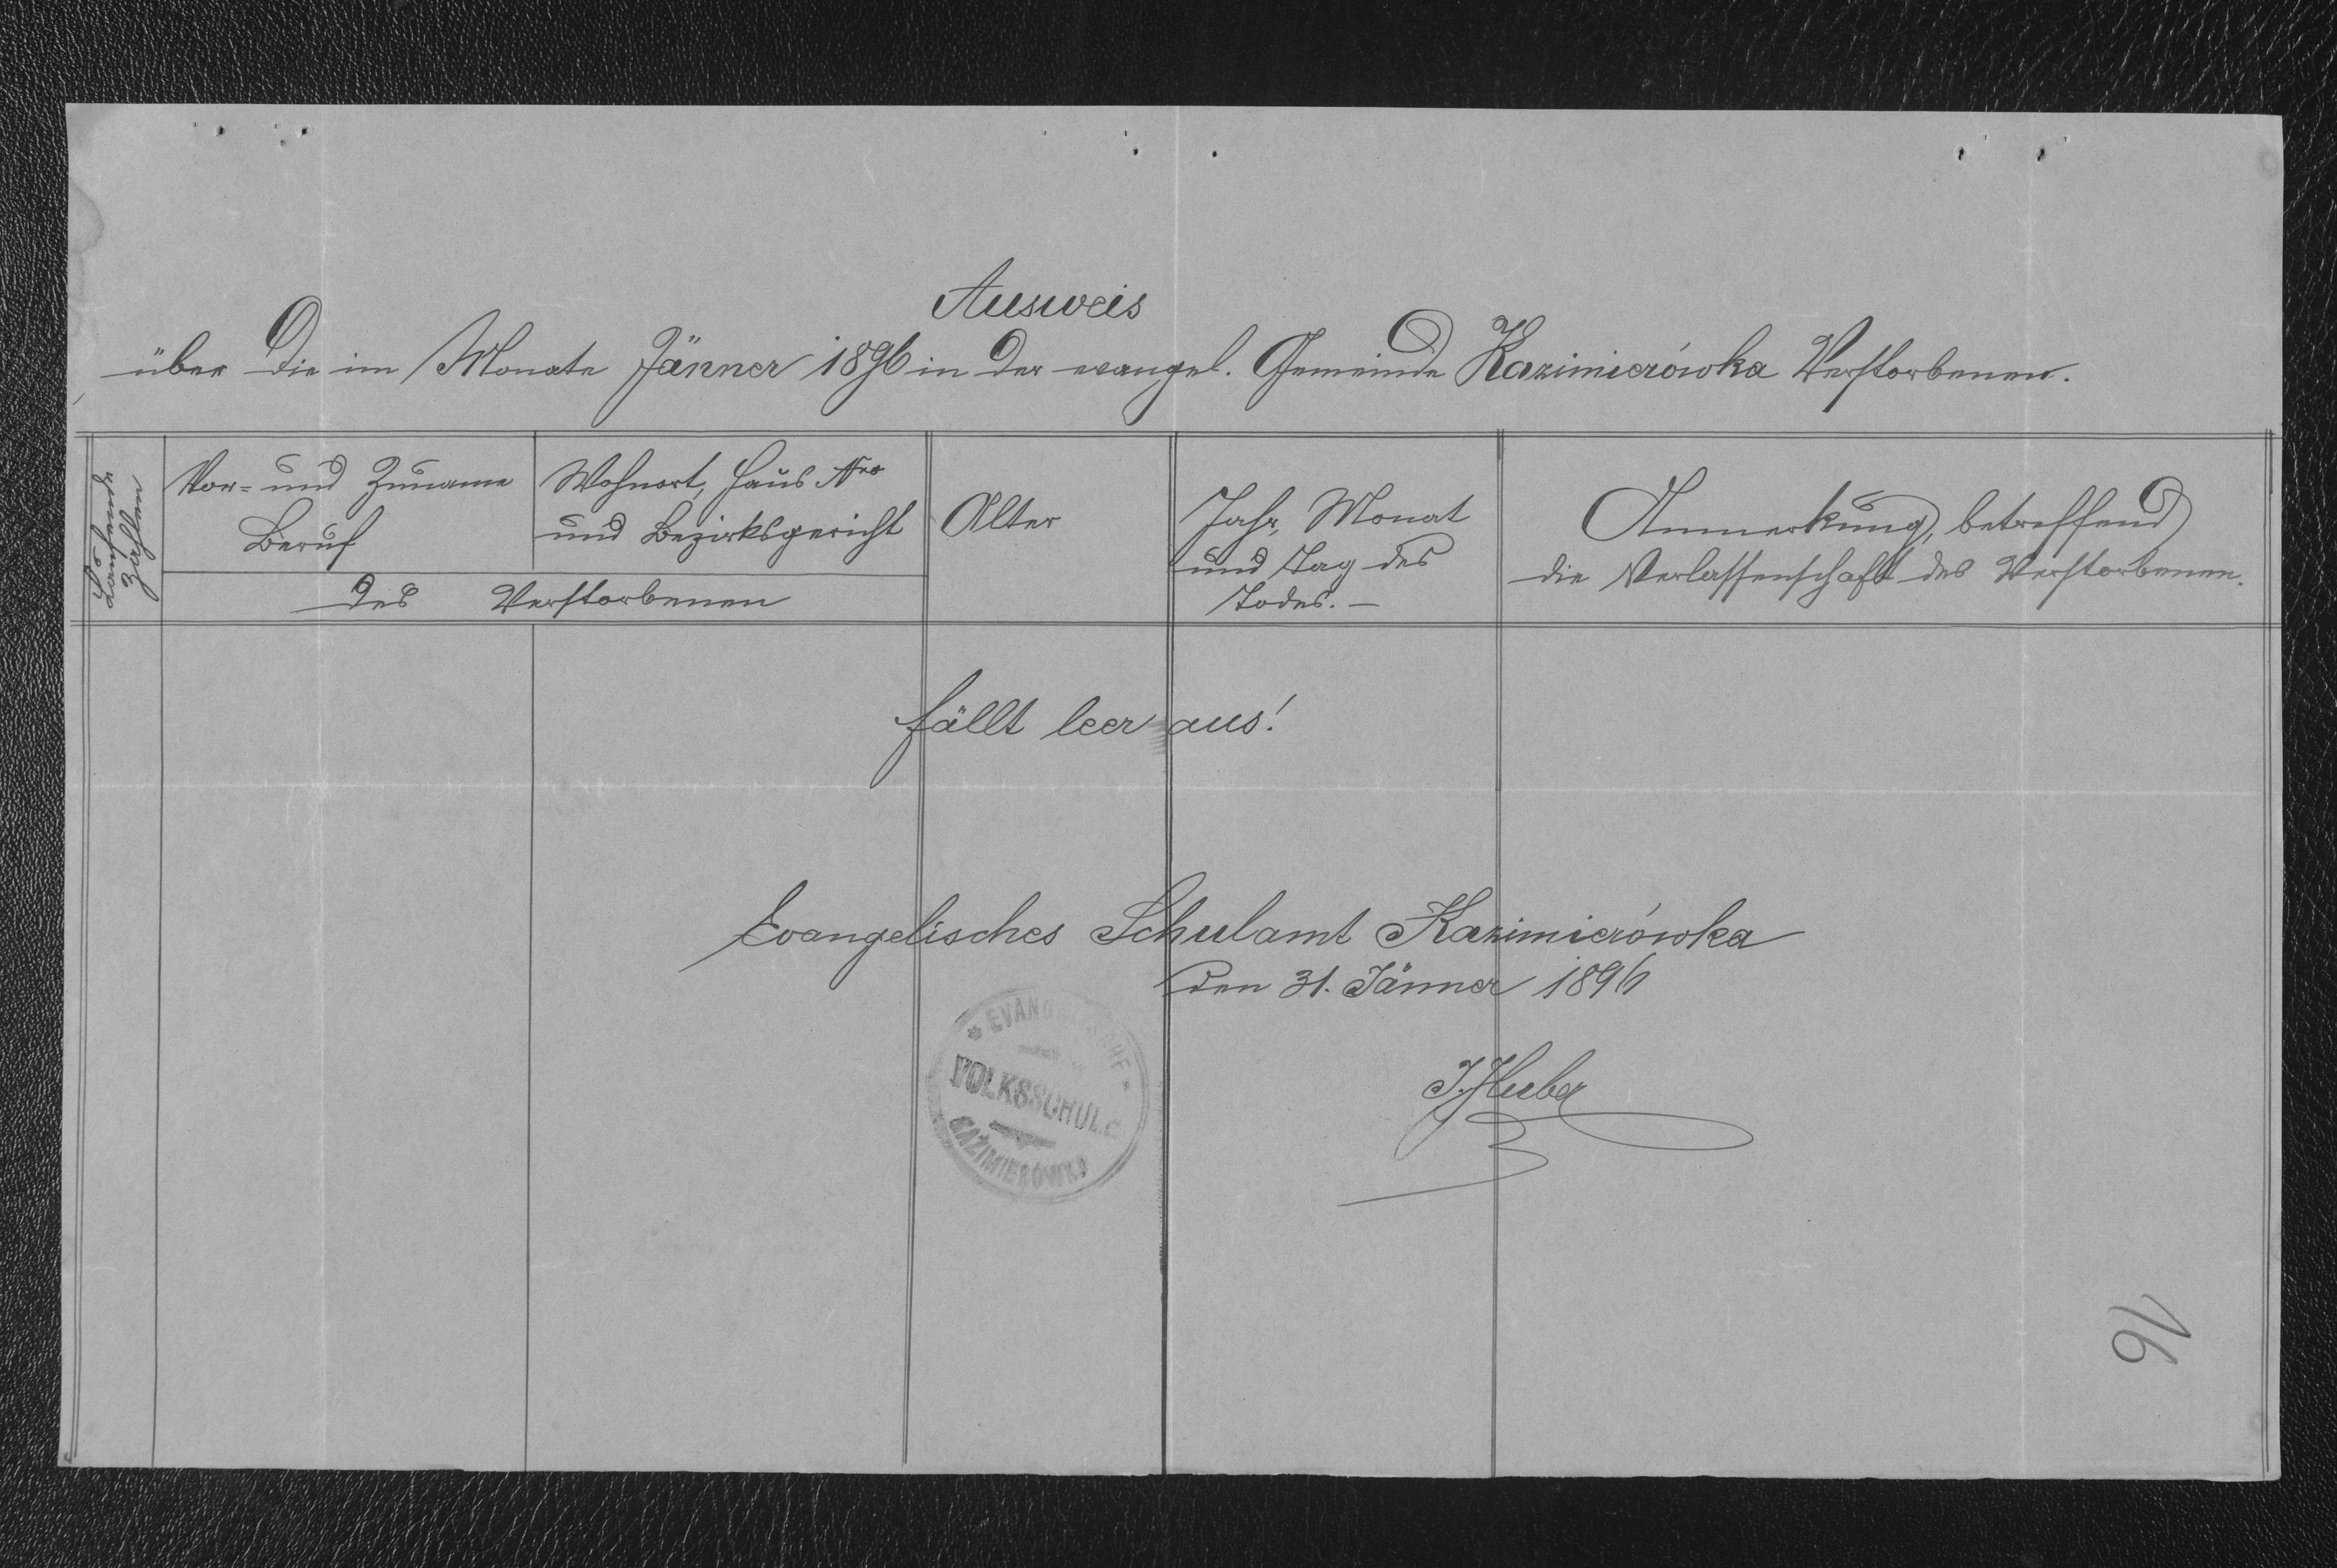 Ausweis
über die im Monate Jänner 1896 in der evangel. Gemeinde Kazimierówka Verstorbenen.
Laufende
Zahlen
Vor- und Zuname
Beruf
Wohnort, Haus Nro
und Bezirksgericht
des Verstorbenen
Alter
Jahr, Monat
und Tag des
Todes. —
Anmerkung, betreffend
die Verlassenschaft des Verstorbenen.
fällt leer aus!
Evangelisches Schulamt Kazimierówka
den 31. Jänner 1896
EVANGELISCHE
VOLKSSCHULE
KAZIMIERÓWKA
J. Huber
16